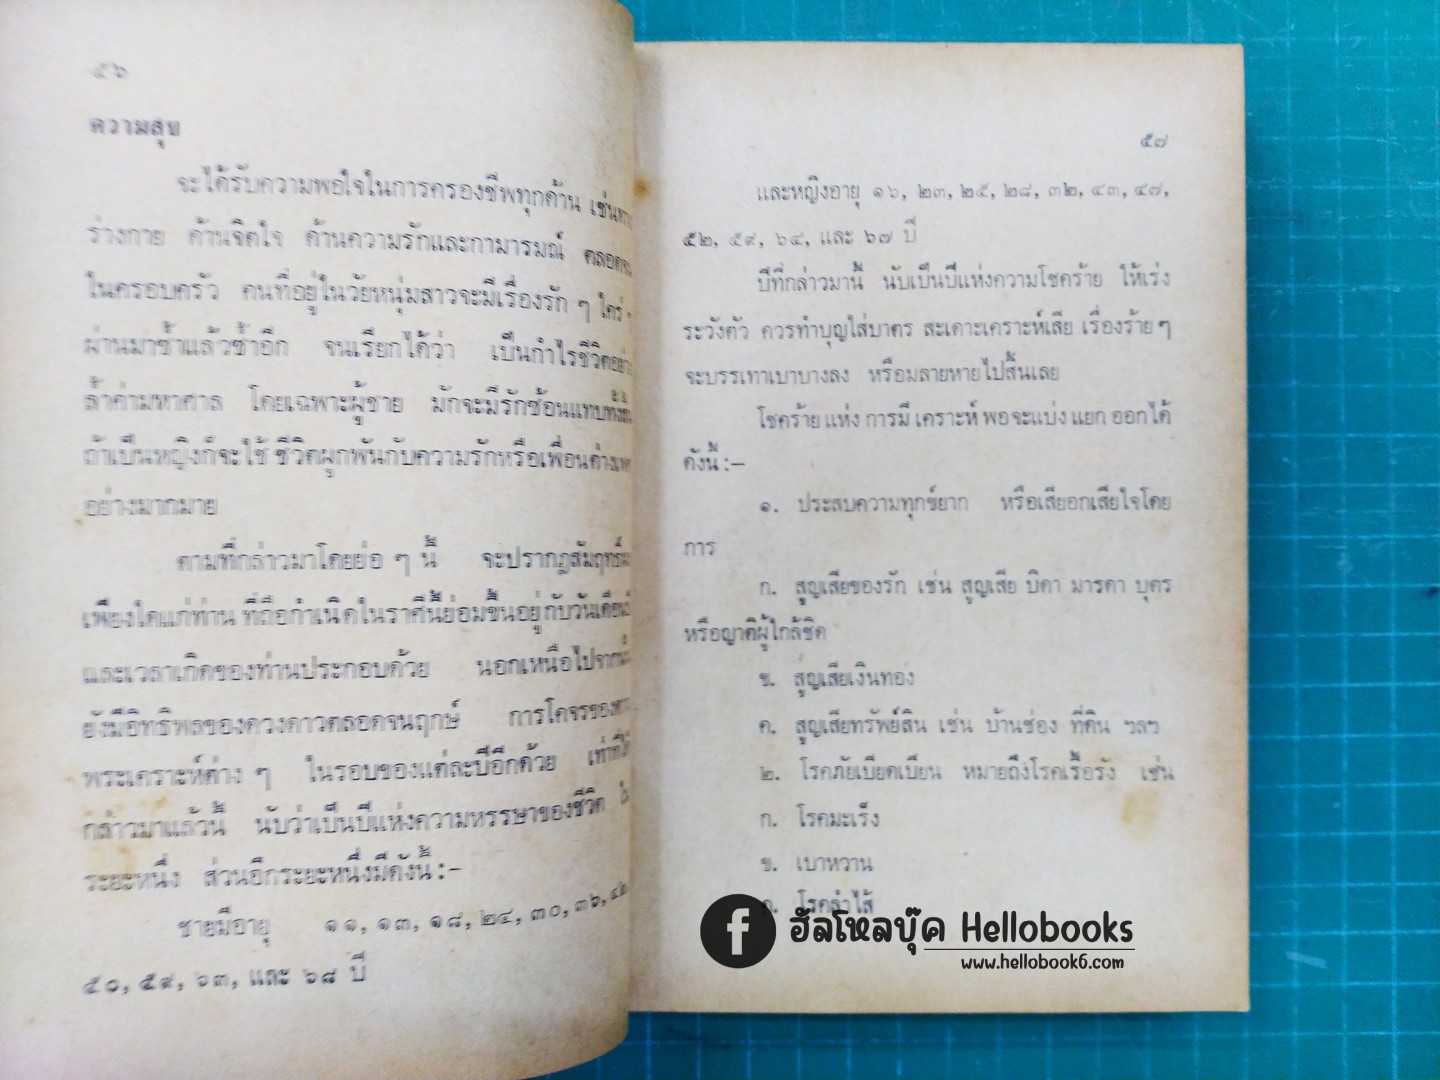 ๕๖
ความสุข
จะได้รับความพอใจในการครองชีพทุกด้าน เช่นทาง
ร่างกาย ด้านจิตใจ ด้านความรักและกามารมณ์ ตลอดจน
ในครอบครัว คนที่อยู่ในวัยหนุ่มสาวจะมีเรื่องรัก ๆ ใคร่ ๆ
ผ่านมาซ้ำแล้วซ้ำอีก จนเรียกได้ว่า เป็นกำไรชีวิตอย่าง
ล้ำค่ามหาศาล โดยเฉพาะผู้ชาย มักจะมีรักซ้อนแทบทั้งสิ้น
ถ้าเป็นหญิงก็จะใช้ ชีวิตผูกพันกับความรักหรือเพื่อนต่างเพศ
อย่างมากมาย
ตามที่กล่าวมาโดยย่อ ๆ นี้ จะปรากฏสัมฤทธิ์ผล
เพียงใดแก่ท่าน ที่ถือกำเนิดในราศีนี้ย่อมขึ้นอยู่กับวันเดือนปี
และเวลาเกิดของท่านประกอบด้วย นอกเหนือไปจากนี้
ยังมีอิทธิพลของดวงดาวตลอดจนฤกษ์ การโคจรของ
พระเคราะห์ต่าง ๆ ในรอบของแต่ละปีอีกด้วย เท่าที่ได้
กล่าวมาแล้วนี้ นับว่าเป็นปีแห่งความหรรษาของชีวิต ใน
ระยะหนึ่ง ส่วนอีกระยะหนึ่งมีดังนี้ :–
ชายมีอายุ ๑๑, ๑๓, ๑๘, ๒๔, ๓๐, ๓๖, ๔๒,
๕๐, ๕๙, ๖๓, และ ๖๘ ปี
๕๗
และหญิงอายุ ๑๖, ๒๓, ๒๕, ๒๘, ๓๒, ๔๓, ๔๗,
๕๒, ๕๙, ๖๔, และ ๖๗ ปี
ปีที่กล่าวมานี้ นับเป็นปีแห่งความโชคร้าย ให้เร่ง
ระวังตัว ควรทำบุญใส่บาตร สะเดาะเคราะห์เสีย เรื่องร้าย ๆ
จะบรรเทาเบาบางลง หรือมลายหายไปสิ้นเลย
โชคร้าย แห่ง การมี เคราะห์ พอจะแบ่ง แยก ออกได้
ดังนี้ :–
๑. ประสบความทุกข์ยาก หรือเสียอกเสียใจโดย
การ
ก. สูญเสียของรัก เช่น สูญเสีย บิดา มารดา บุตร
หรือญาติผู้ใกล้ชิด
ข. สูญเสียเงินทอง
ค. สูญเสียทรัพย์สิน เช่น บ้านช่อง ที่ดิน ฯลฯ
๒. โรคภัยเบียดเบียน หมายถึงโรคเรื้อรัง เช่น
ก. โรคมะเร็ง
ข. เบาหวาน
ค. โรคลำไส้
f ฮัลโหลบุ๊ค Hellobooks
www.hellobook6.com